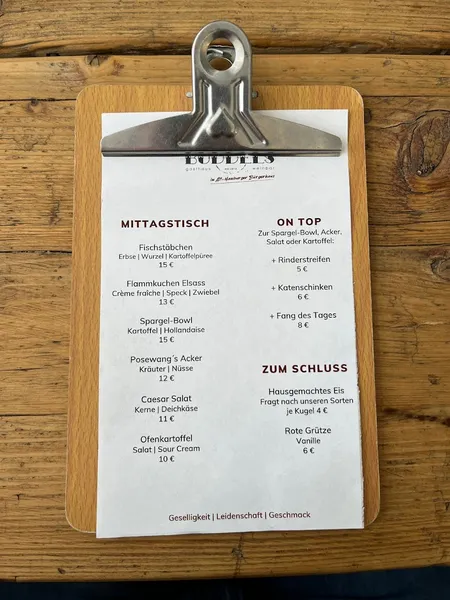 BUDDELS
gasthaus weinbar
im Alt-Hamburger Bürgerhaus
MITTAGSTISCH
Fischstäbchen
Erbse | Wurzel | Kartoffelpüree
15 €
Flammkuchen Elsass
Crème fraîche | Speck | Zwiebel
13 €
Spargel-Bowl
Kartoffel | Hollandaise
15 €
Posewang´s Acker
Kräuter | Nüsse
12 €
Caesar Salat
Kerne | Deichkäse
11 €
Ofenkartoffel
Salat | Sour Cream
10 €
ON TOP
Zur Spargel-Bowl, Acker,
Salat oder Kartoffel:
+ Rinderstreifen
5 €
+ Katenschinken
6 €
+ Fang des Tages
8 €
ZUM SCHLUSS
Hausgemachtes Eis
Fragt nach unseren Sorten
je Kugel 4 €
Rote Grütze
Vanille
6 €
Geselligkeit | Leidenschaft | Geschmack